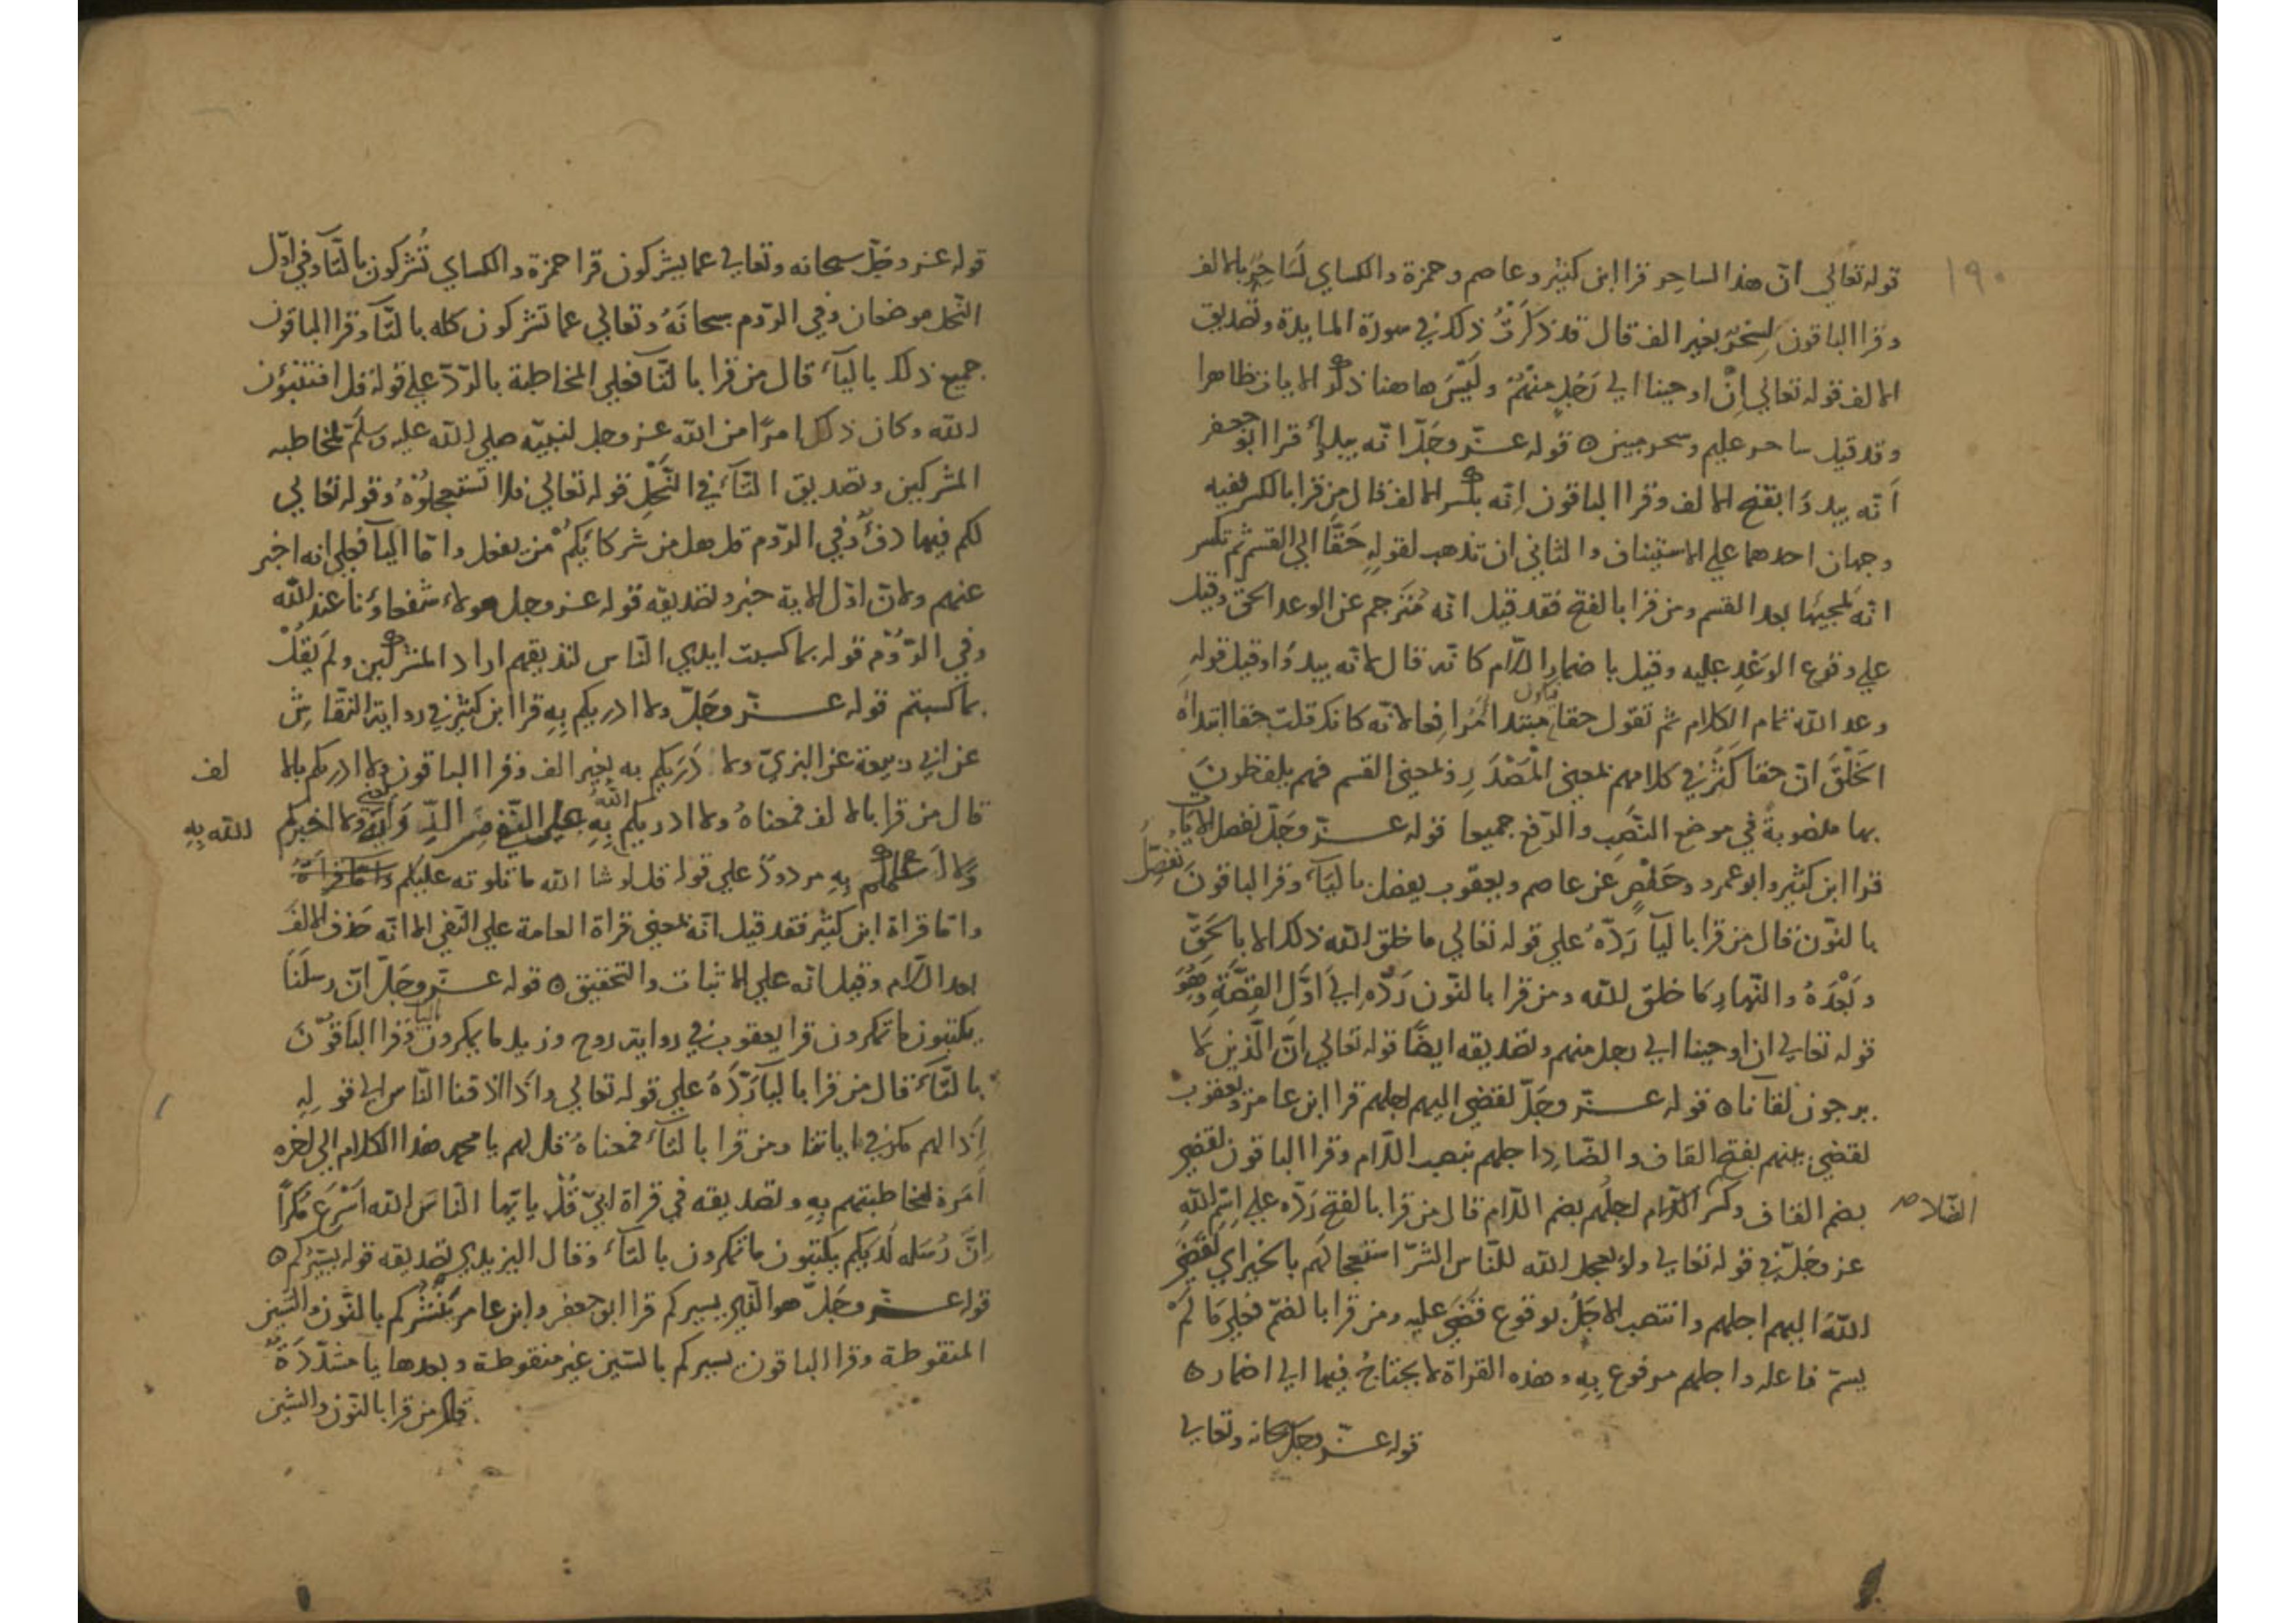 ١٩٠
قوله تعالي ان هذا لساحر قرا ابن كثير وعاصم وحمزة والكساي لَسَاحِرٌ بالالف
وقرا الباقون لسِحْرٌ بغير الف قال قد ذكَرْتُ ذلك في سورة المايدة وتصديق
الالف قوله تعالي اِنْ اوحينا الي رَجُلٍ منهُمْ ولَيْسَ هاهنا ذكر الايات ظاهرا
وقد قيل ساحر عليم وسحر مبين ه قوله عزّ وجَلّ انّه يبدا قرا ابو جعفر
اَنّه يبدَؤا بفتح الالف وقرا الباقون اِنّه بكسر الالف قال من قرا بالكسر ففيه
وجهان احدهما علي الاستيناف والثاني ان تذهب لقولِهِ حَقًّا الي القسم ثم تكسر
انّه لمجيها بعد القسم ومن قرا بالفتح فقد قيل انّه مُتَرجم عن الوعد الحقّ وقيل
علي وقوع الوَعْدِ عليه وقيل باضمار اللام كانّه قال لانّه يبدؤا وقيل قوله
وعد الله تمام الكلام ثم تقول حقا مبتدا مُرافعا لانّه كانك قلت حقا ابتداه
الخَلْقَ انّ حقا كَثُرَ في كلامهم بمعني المَصْدَرِ وبمعني القسم فهم يلفظونَ
بها منصوبةً في موضع النصْبِ والرّفع جميعا قوله عزّ وجَلّ نفصل الايات
قرا ابن كثير وابو عمرو وحَفْصٍ عن عاصم ويعقوب يفصل باليَآ وقرا الباقونَ نُفَصِّلُ
بالنّون قال من قرا باليآ رَدّهُ علي قوله تعالي ما خلق الله ذلك الا بالحَقِّ
وبَعْدَهُ والنّهارِ كما خلق الله ومن قرا بالنّون رَدّه الي اَوّلِ القِصَّةِ وهُوَ
قوله تعالي ان اوحينا الي رجل منهم وتصديقه ايضًا قوله تعالي انّ الّذين لا
يرجون لقآناه قوله عزّ وجَلّ لقضي اليهم اجلهم قرا ابن عامر ويعقوب
لقضي بينهم بفتح القاف والضّاد اجلهم بنصب اللّام وقرا الباقون لقضي
بضم القاف وكسر اللّام اجلُهم بضم اللّام قال من قرا بالفتح رَدّه علي اسْمِ اللهِ
الضّاد صح
عز وجَلّ في قوله تعالي ولو يعجل الله للنّاس الشرّ استعجالَهُم بالخير اي لَقَضَي
اللهُ اليهم اجلهم وانتصب الاجَلُ بوقوع قَضَي عليه ومن قرا بالضمّ فعلي مَا لَمْ
يسمّ فاعله واجلهم مرفوع بِهِ وهذه القراة لا يحتاجُ فيها الي اضمار ه
قوله عزّ وجلّ سبحانه وتعالي
قوله عز وجَلّ سبحانه وتعالي عما يشركون قرا حمزة والكساي تُشركون بالتّآ وفي اوّل
النّحل موضعان وفي الرّوم سبحانَهُ وتعالي عما تشركون كله بالتّآ وقرا الباقون
جميع ذلك باليآ قال من قرا بالتّآ فعلي المخاطبة بالردّ علي قوله قل اتنبّؤن
الله وكان ذلك امرًا من الله عز وجل لنبيّه صلي الله عليه وسلّم لمخاطبه
المشركين وتصديق التّآ في النّحْلِ قوله تعالي فلا تَستعجلوْهُ وقوله تعالي
لكم فيها دفْءٌ وفي الرّوم قل هل من شركآئكُمْ من يفعل وامّا اليآ فعلي انه اخبر
عنهم ولان اوّل الاية خبر وتصديقه قوله عز وجل هولاء شفعاؤنا عند الله
وفي الرّوْم قوله بما كسبت ايدي النّاس لنذيقهم اراد المشركين ولم يَقُلْ
بما كسبتم قوله عزّ وجَلّ ولا ادريكم بِهِ قرا ابن كثير في رواية النقّاش
عن ابي ربيعة عن البزيّ ولا دَرَيكم به بغير الف وقرا الباقون ولا ادريكم بالا
لف
قال من قرا بالالف فمعناهُ ولا ادريكم الله بِهِ علي النّفي من الدِّرَايَةِ يعني ولا اخبركم
الله بِهِ
ولا اَعلمكم بِهِ مردودٌ علي قوله قل لو شا الله ما تلوته عليكم
وامّا قراة ابن كثير فقد قيل انّه بمعني قراة العامة علي النّفي الا انّه حَذف الالف
بعد اللّام وقيل انه علي الاثبات والتحقيق ه قوله عزّ وجَلّ انّ رسلَنَا
يكتبون ما تمكرون قرا يعقوب في رواية روح وزيد ما يمكرون باليا وقرا الباقونَ
بالتّآ قال من قرا باليآ رَدّهُ علي قوله تعالي واذا اذقنا النّاس الي قولِهِ
اِذا لهم مكر في اياتنا ومن قرا بالتّآ فمعناهُ قل لهم يا محمد هذا الكلام الي اخره
اَمَرهُ لمخاطبتهم بِهِ وتصديقه في قراة ابيّ قُلْ يا يّها النّاس الله اَسْرعُ مَكْرًا
اِنّ رُسله لَدَيكم يكتبون ما تمكرون بالتآ وقال اليزيدي تصديقه قوله يسيّركم ه
قوله عزّ وجَلّ هو الّذي يسيركم قرا ابو جعفر وابن عامر يَنْشركم بالنّون والشّين
المنقوطة وقرا الباقون يسيركم بالسّين غير منقوطة وبعدها يآ مشدّدَةٌ
قال من قرا بالنّون والشّين